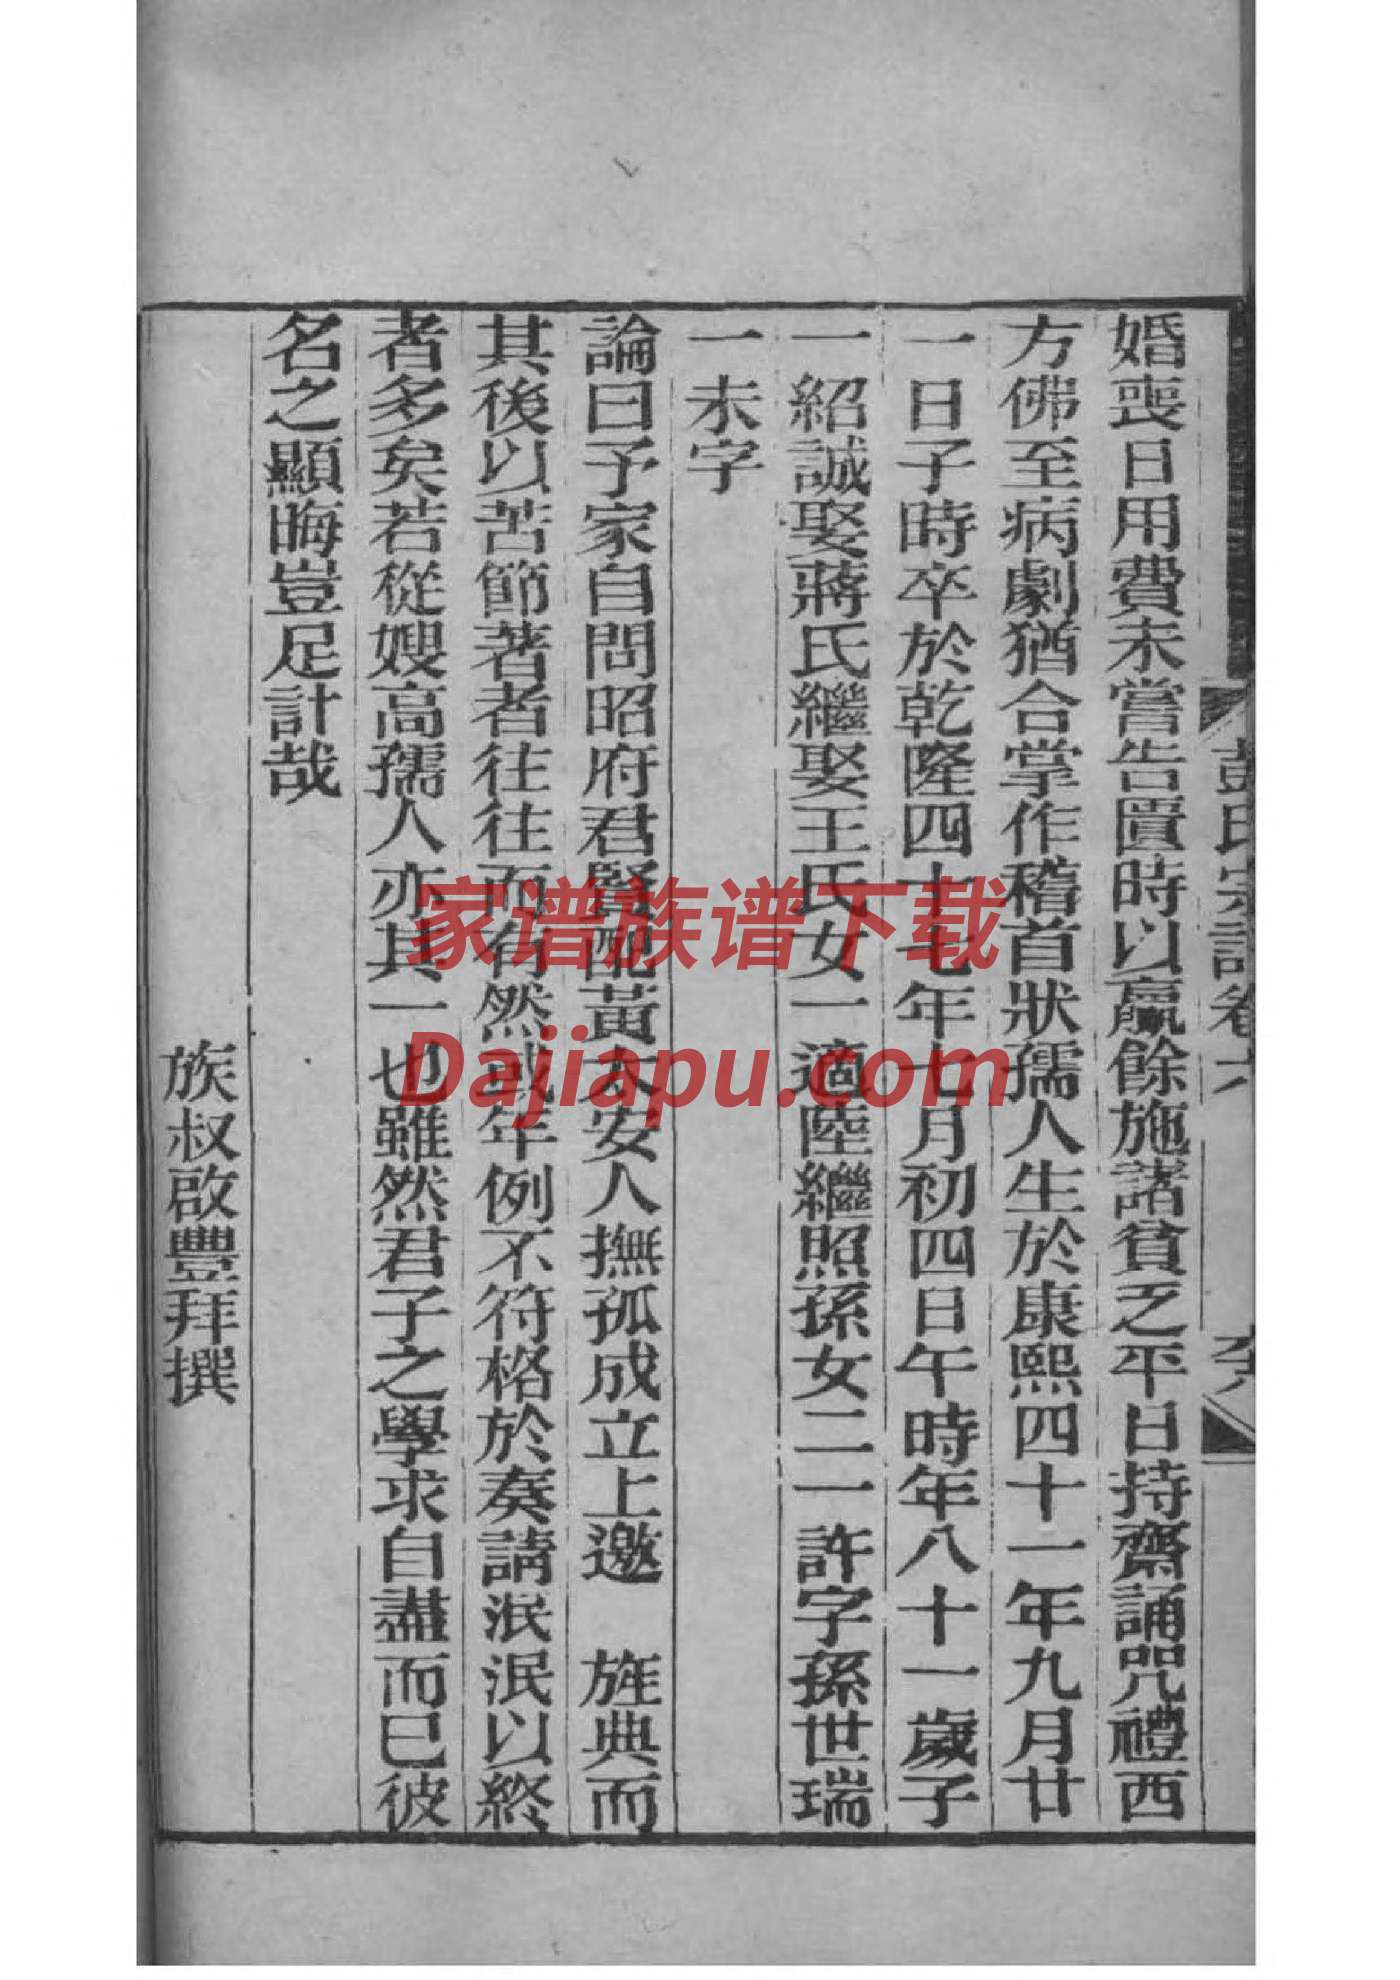 彭氏宗譜卷六
六八
婚喪日用費未嘗告匱時以贏餘施諸貧乏平日持齋誦咒禮西
方佛至病劇猶合掌作稽首狀孺人生於康熙四十一年九月廿
一日子時卒於乾隆四十七年七月初四日午時年八十一歲子
一紹諴娶蔣氏繼娶王氏女一適陸繼照孫女二一許字孫世瑞
一未字
論曰予家自問昭府君賢配黃太安人撫孤成立上邀 旌典而
其後以苦節著者往往而有然或年例不符格於奏請泯泯以終
者多矣若從嫂高孺人亦其一也雖然君子之學求自盡而已彼
名之顯晦豈足計哉
族叔啟豐拜撰
家谱族谱下载
Dajiapu.com